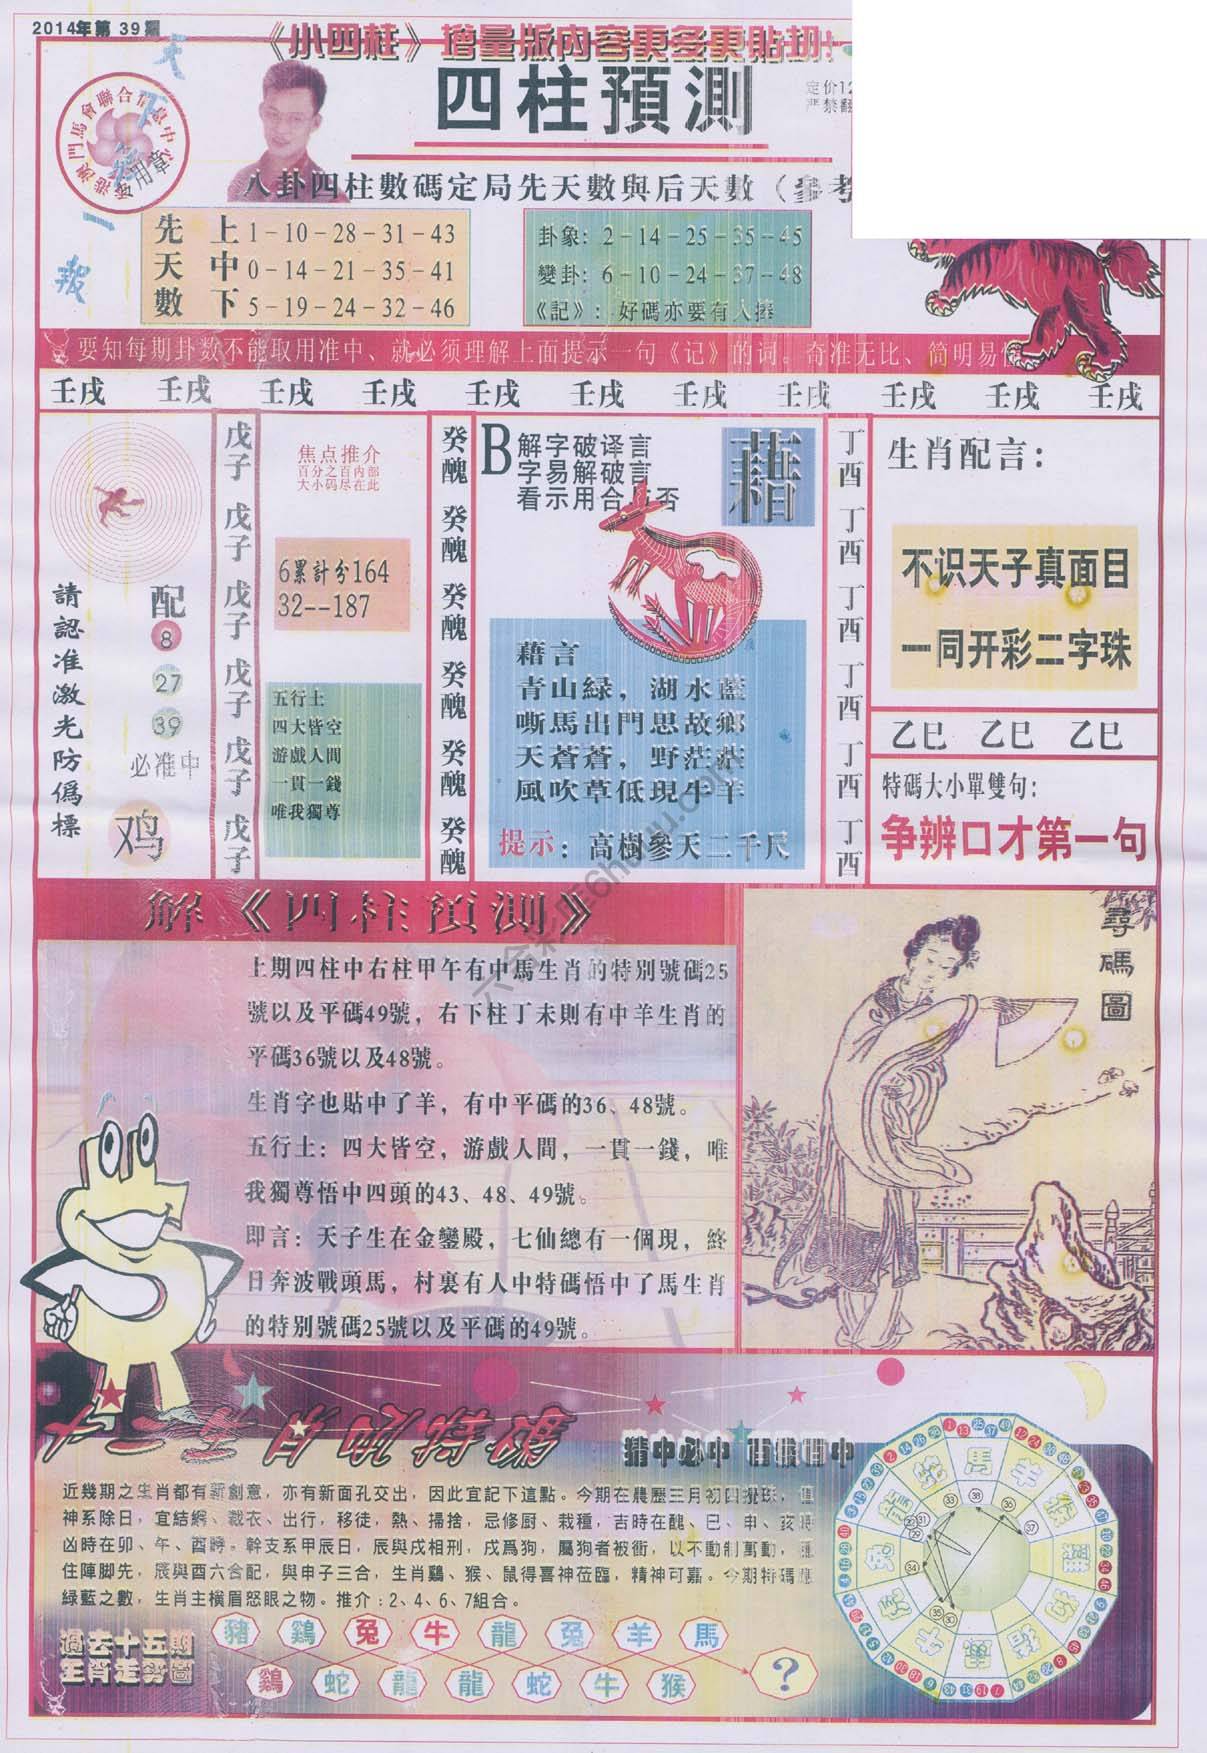 2014年第 39 期
《小四柱》增量版內容更多更貼切!
四柱預測
定价12
严禁翻
天下第一報
八卦四柱數碼定局先天數與后天數（參考
先天數
上 1-10-28-31-43
中 0-14-21-35-41
下 5-19-24-32-46
卦象: 2-14-25-35-45
變卦: 6-10-24-37-48
《記》: 好碼亦要有人捧
要知每期卦数不能取用准中、就必须理解上面提示一句《记》的词。奇准无比、简明易
壬戌 壬戌 壬戌 壬戌 壬戌 壬戌 壬戌 壬戌 壬戌 壬戌 壬戌
請認准激光防僞標
配
8
27
39
必准中
鸡
戊子 戊子 戊子 戊子 戊子 戊子
焦点推介
百分之百内部
大小码尽在此
6累計分164
32--187
五行土
四大皆空
游戲人間
一貫一錢
唯我獨尊
癸醜 癸醜 癸醜 癸醜 癸醜 癸醜
B
解字破译言
字易解破言
看示用合 否
藉
藉言
青山緑，湖水藍
嘶馬出門思故鄉
天蒼蒼，野茫茫
風吹草低現牛羊
提示: 高樹參天二千尺
丁酉 丁酉 丁酉 丁酉 丁酉 丁酉
生肖配言:
不识天子真面目
一同开彩二字珠
乙巳 乙巳 乙巳
特碼大小單雙句:
争辨口才第一句
解《四柱預測》
上期四柱中右柱甲午有中馬生肖的特别號碼25
號以及平碼49號，右下柱丁未則有中羊生肖的
平碼36號以及48號。
生肖字也貼中了羊，有中平碼的36、48號。
五行土: 四大皆空，游戲人間，一貫一錢，唯
我獨尊悟中四頭的43、48、49號。
即言: 天子生在金鑾殿，七仙總有一個現，終
日奔波戰頭馬，村裏有人中特碼悟中了馬生肖
的特别號碼25號以及平碼的49號。
尋碼圖
猜中必中
近幾期之生肖都有新創意，亦有新面孔交出，因此宜記下這點。今期在農歷三月初四攪珠，
神系除日，宜結網、裁衣、出行，移徙，熱、掃捨，忌修厨、栽種，吉時在醜、巳、申、亥時
凶時在卯、午、酉時。幹支系甲辰日，辰與戌相刑，戌爲狗，屬狗者被衝，以不動制萬動，
住陣脚先，辰與酉六合配，與申子三合，生肖鷄、猴、鼠得喜神莅臨，精神可嘉。今期特碼應
緑藍之數，生肖主横眉怒眼之物。推介:2、4、6、7組合。
過去十五期
生肖走勢圖
豬 鷄 兔 牛 龍 兔 羊 馬
鷄 蛇 龍 龍 蛇 牛 猴 ?
六合彩库6huu.com